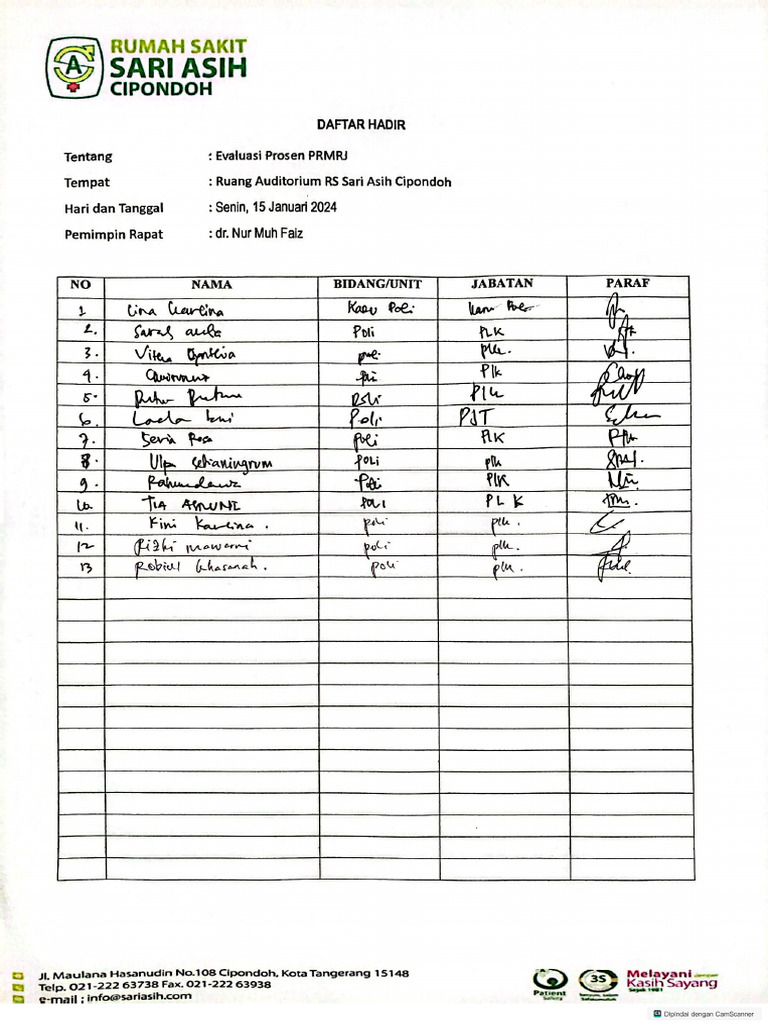 RUMAH SAKIT
SARI ASIH
CIPONDOH
DAFTAR HADIR
Tentang : Evaluasi Prosen PRMRJ
Tempat : Ruang Auditorium RS Sari Asih Cipondoh
Hari dan Tanggal : Senin, 15 Januari 2024
Pemimpin Rapat : dr. Nur Muh Faiz
NO NAMA BIDANG/UNIT JABATAN PARAF
1 Lina Karlina Karu Poli Karu Poli
2. Sarah Poli PLK
3. poli plk.
4. poli Plk
5. poli Plk
6. Poli PJT
7. Poli PLK
8. Ulpa Setianingrum poli plk
9. Poli Plk
10 TIA POLI PLK
11. Kini Karlina. poli plk.
12 Rizki mawarni poli plk.
13 Robiul khasanah. poli plk.
Jl. Maulana Hasanudin No.108 Cipondoh, Kota Tangerang 15148
Telp. 021-222 63738 Fax. 021-222 63938
e-mail : info@sariasih.com
Patient
Safety
3S
Melayani dengan
Kasih Sayang
Sejak 1981
Dipindai dengan CamScanner